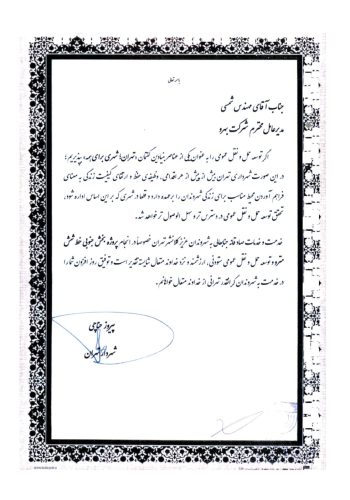 باسمه تعالی
جناب آقای مهندس شمسی
مدیرعامل محترم شرکت بهرو
اگر توسعه حمل و نقل عمومی را به عنوان یکی از عناصر بنیادین گفتمان «تهران؛ شهری برای همه» بپذیریم؛
در این صورت شهرداری تهران بیش از پیش از هر اقدامی، وظیفه‌ی حفظ و ارتقای کیفیت زندگی به معنای
فراهم آوردن محیط مناسب برای زندگی شهروندان را برعهده دارد و قطعا در شهری که بر این اساس اداره شود،
تحقق توسعه حمل و نقل عمومی در دسترس‌تر و سهل‌الوصول‌تر خواهد شد.
خدمت و خدمات صادقانه جنابعالی به شهروندان عزیز کلانشهر تهران خصوصا در انجام پروژه بخش جنوبی خط شش
مترو و توسعه حمل و نقل عمومی ستودنی، ارزشمند و نزد خداوند متعال شایسته تقدیر است و توفیق روز افزون شما را
در خدمت به شهروندان گرانقدر تهرانی از خداوند متعال خواهانم.
پیروز حناچی
شهردار تهران